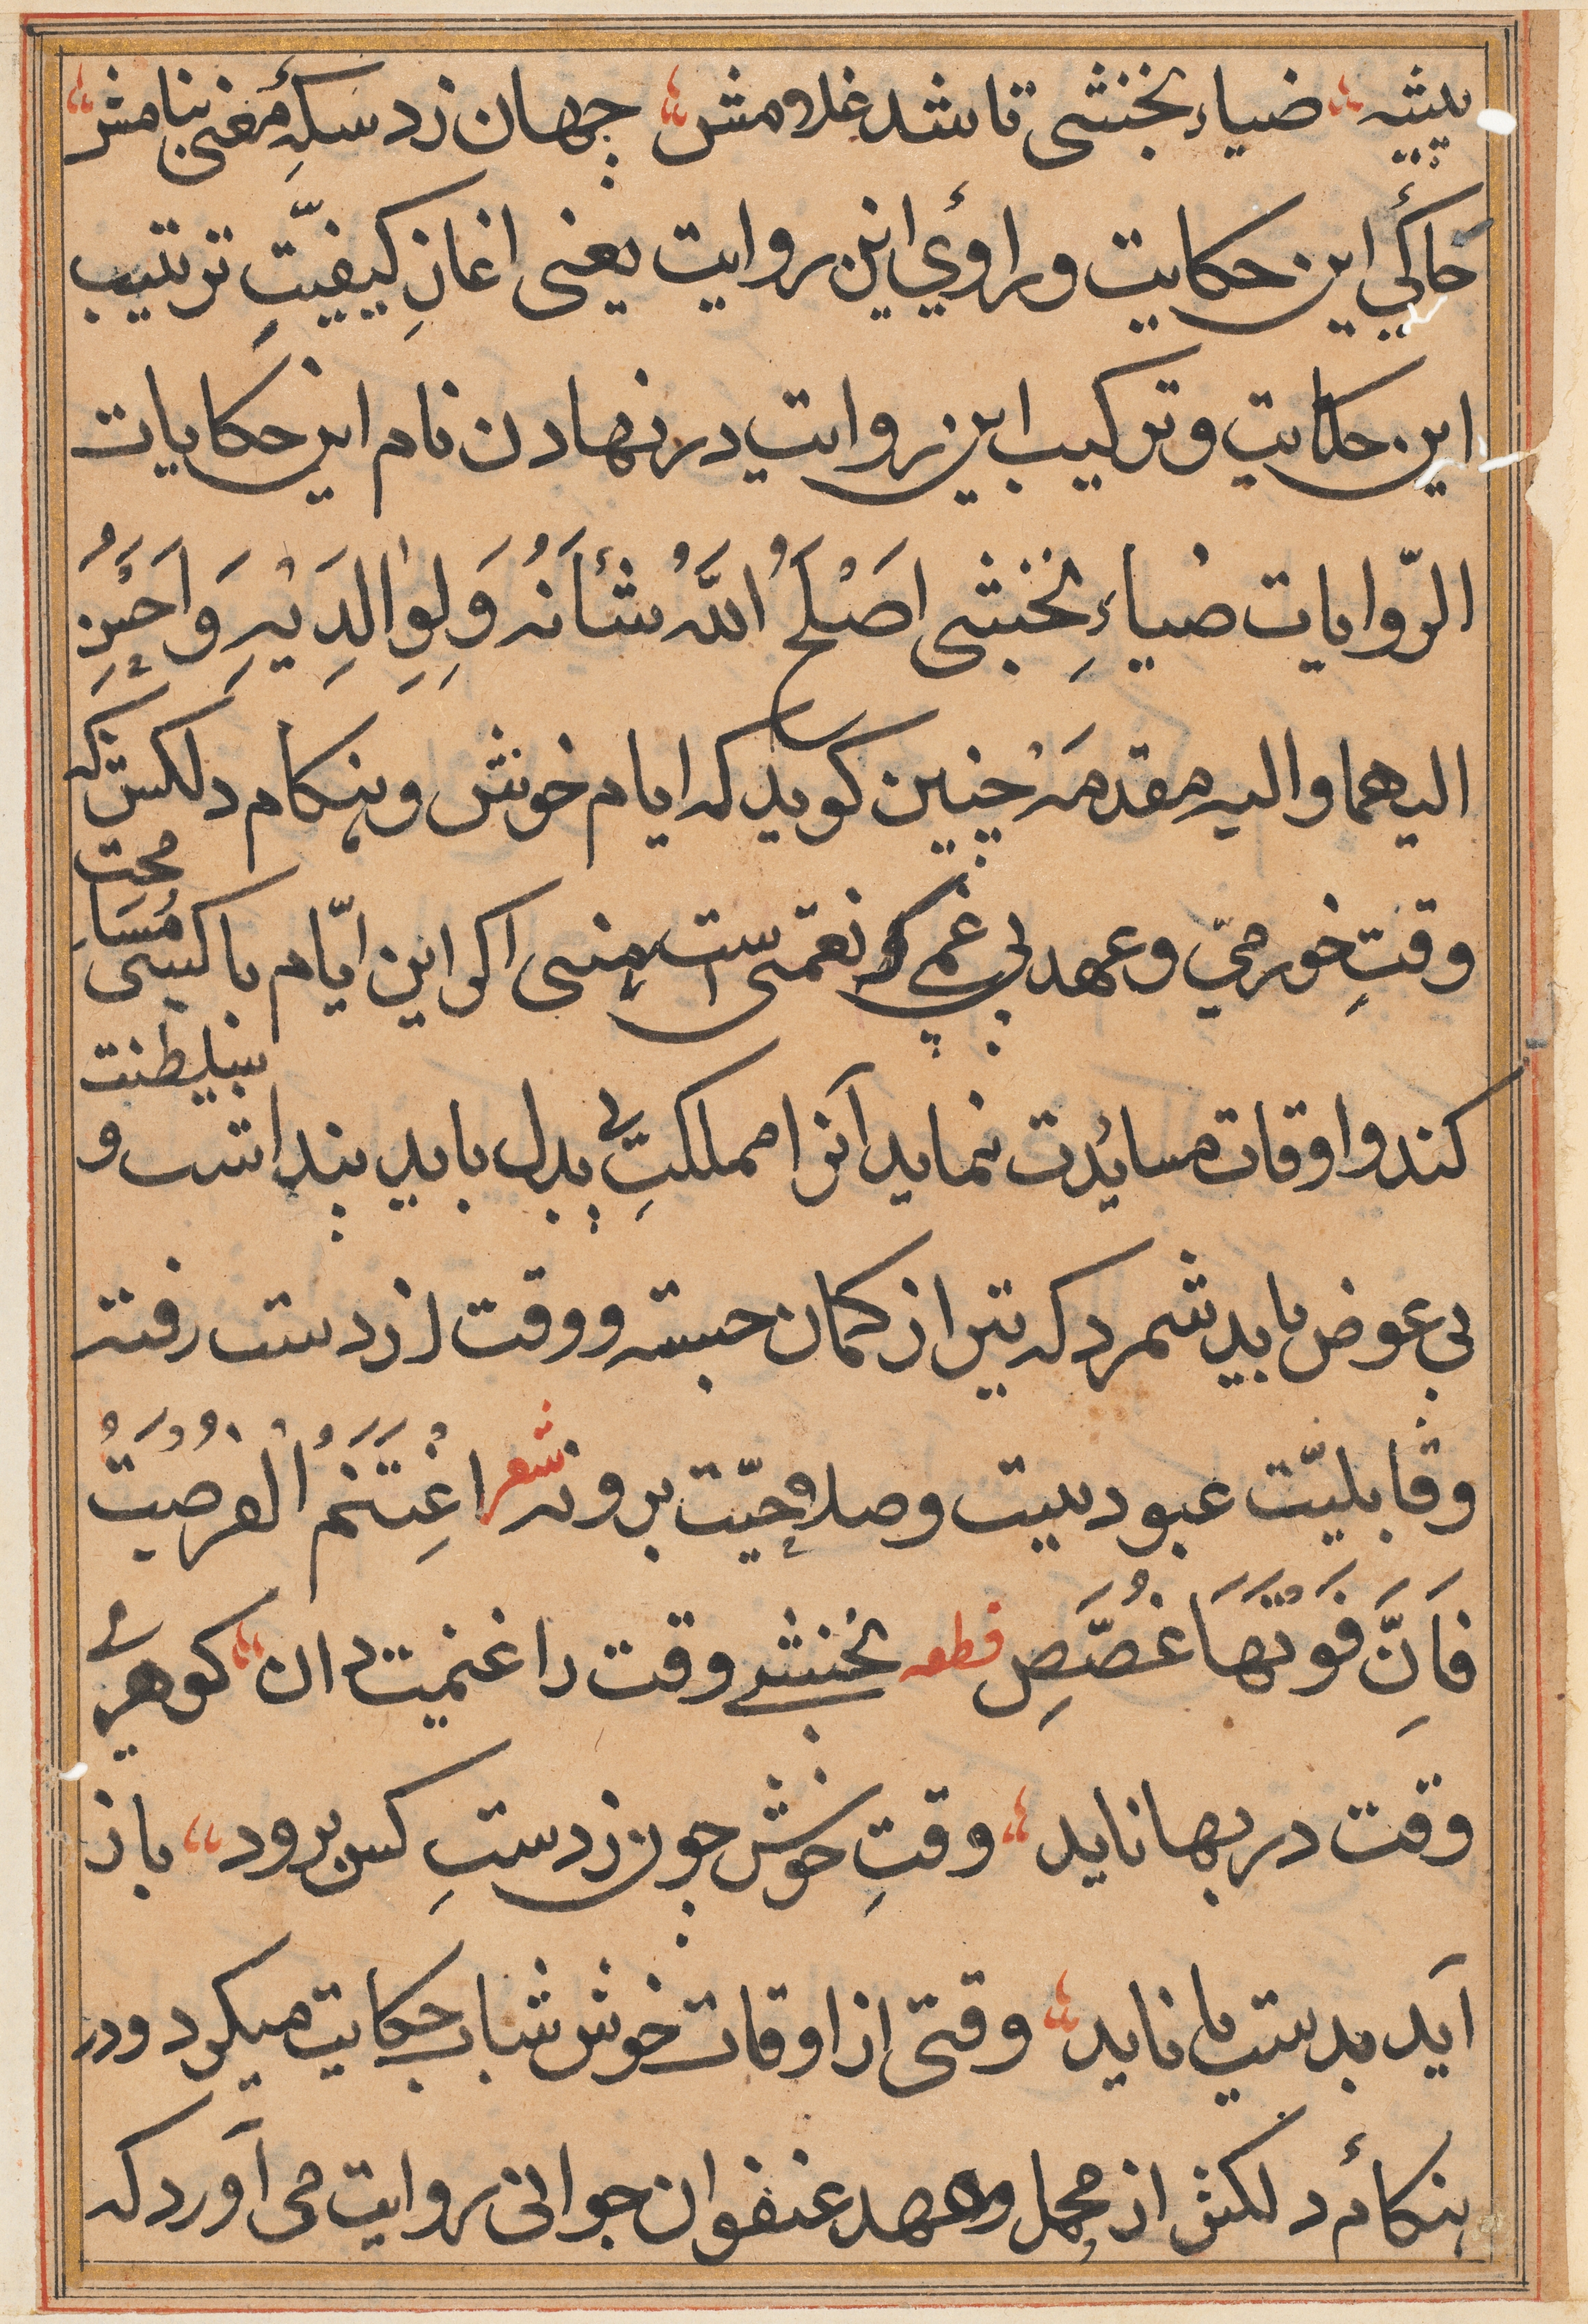 پیشه ضیاء نخشبی تا شد غلامش جهان زد سکهٔ معنی بنامش
حاکیٔ این حکایت و راویٔ این روایت یعنی اغازِ کیفیّتِ ترتیب
این حکایت و ترکیب این روایت در نهادن نام این حکایات
الرّوایات ضیاءِ نخشبی اَصْلَحَ اللّٰهُ شَأنَهُ وَلِوٰالِدَیْهِ وَاَحْسَنِ
الیهما والیه مقدمَهْ چنین کوید که ایام خوش و هنکام دلکش که
وقتِ خورمیّ و عهد بی غمی که نعمتی است سنی اکر این ایّام با کسی مُسَامحت
کند و اوقات مسائدت نماید آنرا مملکتِ بی بدل باید پنداشت و سلطنت
بی عوض باید شمرد که تیر از کمان جسته و وقت از دست رفته
وقابلیّت عبود نیست وصلاحِیّت برو نه شعر اغِتَنَمُ الْفُرصَتُ
فَاَنَّ فَوتَهَا غُصَّصِ قطعه نخشبی وقت را غنیمت دان کوهر
وقت در بها ناید وقتِ خوش چون ز دستِ کس برود باز
آید بدست یا ناید وقتی از اوقات خوش شباب حکایت میکرد و در
هنکامٔ دلکش از مجمل و عهد عنفوان جوانی روایت می آورد که